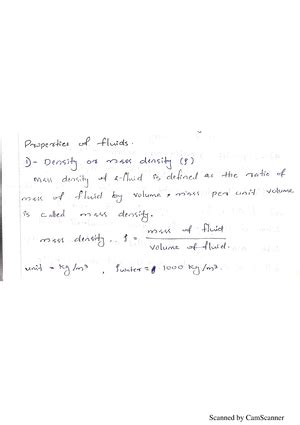 Properties of fluids.
1)- Density or mass density (ρ)
Mass density of a fluid is defined as the ratio of
mass of fluid by volume. mass per unit volume
is called mass density.
mass density.. ρ = mass of fluid
volume of fluid.
unit = kg/m³ , ρwater = 1000 kg/m³.
Scanned by CamScanner